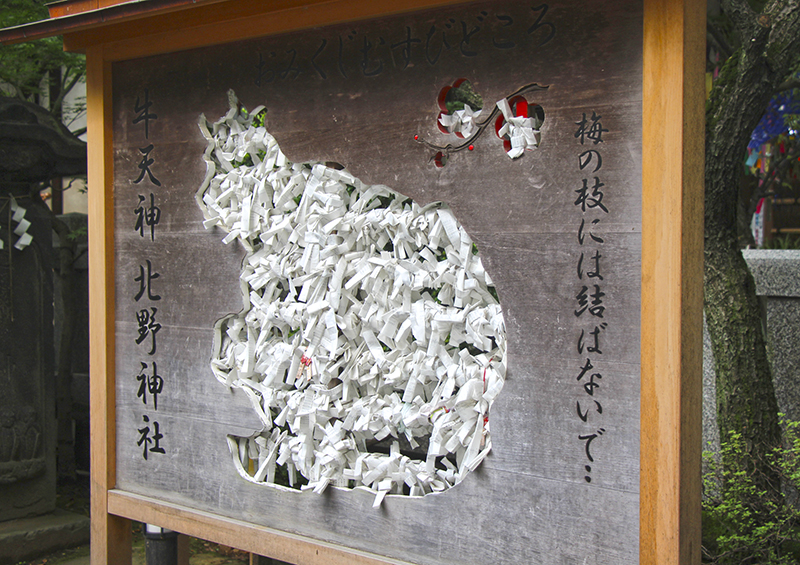 おみくじむすびどころ
梅の枝には結ばないで‥
牛天神 北野神社